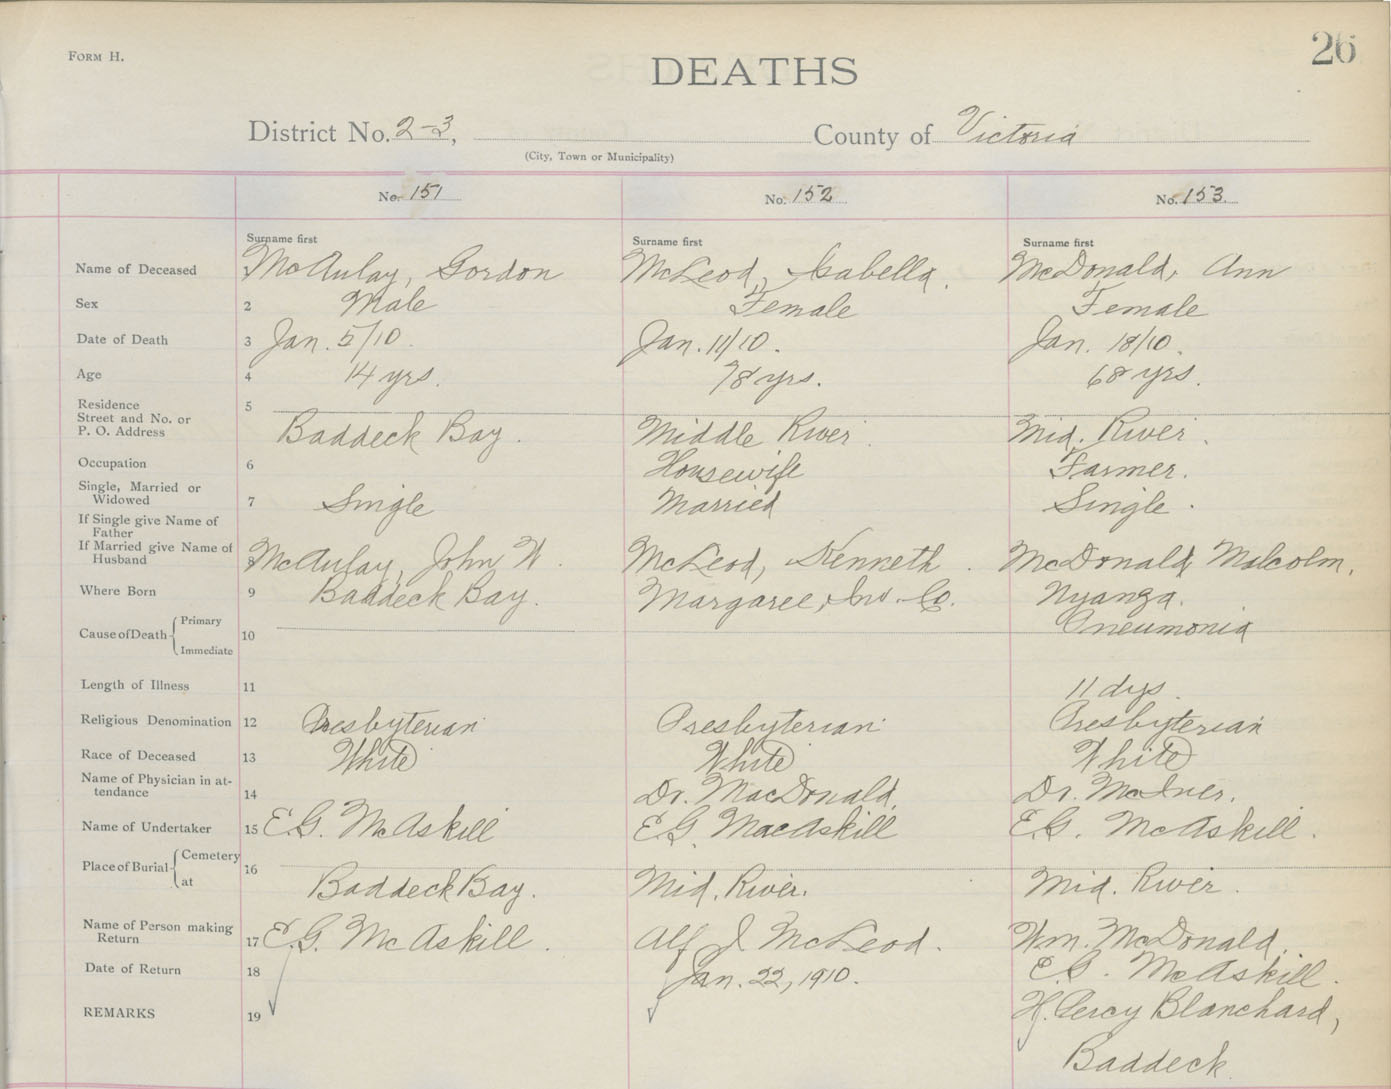 FORM H.
26
DEATHS
District No. 2-3, County of Victoria
(City, Town or Municipality)
No. 151 No. 152 No. 153.
Surname first Surname first Surname first
Name of Deceased McAulay, Gordon McLeod, Isabella. McDonald, Ann
Sex 2 Male Female Female
Date of Death 3 Jan. 5/10. Jan. 11/10. Jan. 18/10.
Age 4 14 yrs. 78 yrs. 68 yrs.
Residence 5
Street and No. or
P. O. Address Baddeck Bay. Middle River. Mid. River.
Occupation 6 Housewife Farmer.
Single, Married or
Widowed 7 Single Married Single.
If Single give Name of
Father
If Married give Name of
Husband 8 McAulay, John W. McLeod, Kenneth. McDonald, Malcolm.
Where Born 9 Baddeck Bay. Margaree, Inv. Co. Nyanza.
Cause of Death { Primary 10 Pneumonia
Immediate
Length of Illness 11 11 dys.
Religious Denomination 12 Presbyterian Presbyterian Presbyterian
Race of Deceased 13 White White White
Name of Physician in at-
tendance 14 Dr. MacDonald. Dr. McIver.
Name of Undertaker 15 E.G. McAskill E.G. MacAskill E.G. McAskill.
Place of Burial { Cemetery 16
at Baddeck Bay. Mid. River. Mid. River.
Name of Person making
Return 17 E.G. McAskill. Alf J McLeod. Wm. McDonald.
Date of Return 18 Jan. 22, 1910. E.G. McAskill.
REMARKS 19 H. Percy Blanchard,
Baddeck